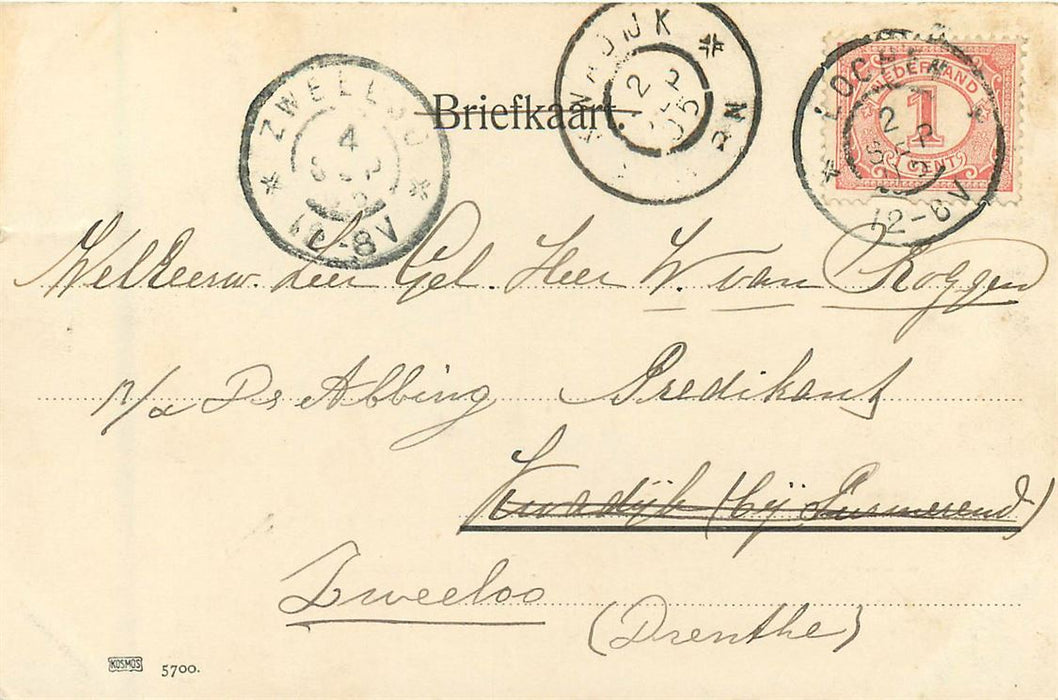 ZWEELOO
4
SEP
12-8V
KWADIJK
2
SEP
05
8-12N
LOCHEM
2
SEP
12-8V
NEDERLAND
1
CENT
Briefkaart.
Weleerw. zeer Gel. Heer W. van Roggen
p/a Ds Abbing Predikant
Kwadijk (bij Purmerend)
Zweeloo
(Drenthe)
KOSMOS 5700.